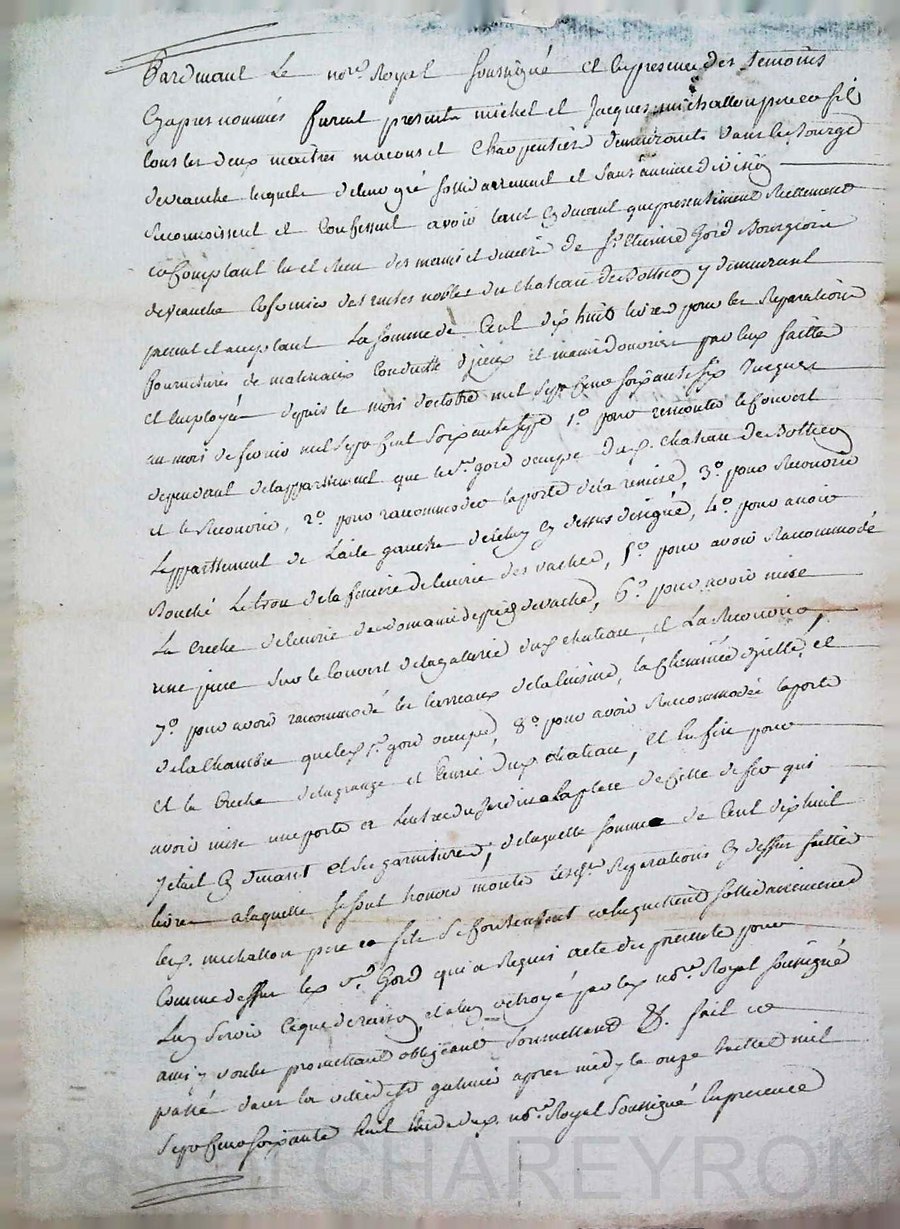 Pardevant Le no.re Royal soussigné et en presence des temoins
Cy apres nommés furent presents michel et Jacques michallon pere et fils
tous les deux maitres macons et charpentiers demeurants dans le bourg
deveauche lesquels de leur gré sollidairement et sans aucune division
Reconnoissent et Confessent avoir tant cy devant que presentement Reellement
et Comptant eu et Receu des mains et deniers de s.r Gord Bourgeois
deveauche cofermier des rentes nobles du chateau de y demeurant
present et acceptant La somme de Cent dix huit livres pour les Reparations
fournitures de materiaux conduitte d'jceux et mains douvrier par eux faittes
et Employés depuis le mois doctobre mil sept Cent soixante six Jusques
au mois de fevrier mil sept Cent soixante sept 1.o pour remonter le couvert
dependant delappartement que le s.r gord occupe dud. chateau de
et le Recouvrir, 2.o pour raccommoder laporte dela remise, 3.o pour Recouvrir
Lappartement de Laile gauche deceluy cy dessus designé, 4.o pour avoir
Bouché Le trou dela fenière delecurie des vaches, 5.o pour avoir Raccommodé
La creche delecurie du domaine de pres de vache, 6.o pour avoir mise
une piece sur le couvert delagallerie dud. chateau et La Recouvrir,
7.o pour avoir raccommodé les carreaux dela cuisine, la cheminée dicelle, et
dela Chambre que led. s.r gord occupe, 8.o pour avoir Raccommodée laporte
et la Creche delagrange et Ecurie dud. chateau, et En fin pour
avoir mise une porte a Lentrée du Jardin alaplace de Celle de fer qui
y etait cy devant et les garnitures, delaquelle somme de Cent dix huit
livres a laquelle se sont trouvés montés lesd. Reparations cy dessus faittes
lesd. michallon pere et fils se Contentent et quittent sollidairement
Comme dessus led. s.r Gord qui a Requis acte des presentes pour
Luy servir ce que de raison, et a luy octroyé par led. no.re Royal soussigné
ainsy voulu promettant obligeant soumettant &. fait et
passé dans la ville de st galmier apres midy le onze Juillet mil
Sept Cent soixante huit no.re Royal Soussigné En presence
Pascal CHAREYRON